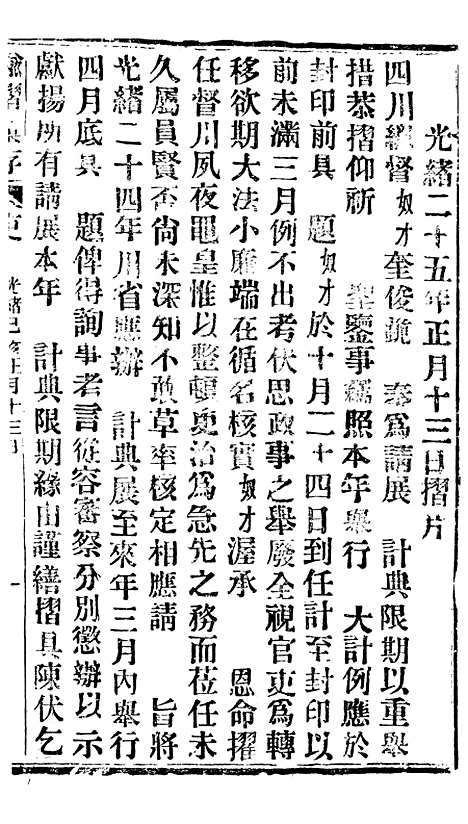 光緒二十五年正月十三日摺片
四川總督奴才奎俊跪 奏爲請展 計典限期以重舉
措恭摺仰祈 聖鑒事竊照本年舉行 大計例應於
封印前具 題奴才於十月二十四日到任計至封印以
前未滿三月例不出考伏思政事之舉廢全視官吏爲轉
移欲期大法小廉端在循名核實奴才渥承 恩命擢
任督川夙夜黽皇惟以整頓吏治爲急先之務而莅任未
久屬員賢否尙未深知不敢草率核定相應請 旨將
光緒二十四年川省應辦 計典展至來年三月內舉行
四月底具 題俾得詢事考言從容審察分別懲辦以示
獻揚所有請展本年 計典限期緣由謹繕摺具陳伏乞
諭摺 光緒己亥正月十三日